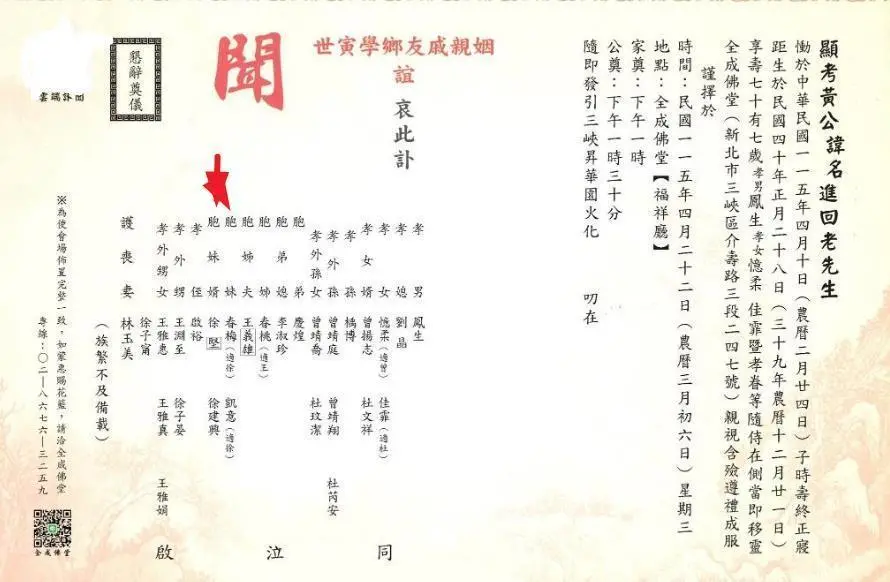 顯考黃公諱名進回老先生
慟於中華民國一一五年四月十日(農曆二月廿四日)子時壽終正寢
距生於民國四十年正月二十八日(三十九年農曆十二月廿一日)
享壽七十有七歲孝男鳳生孝女憶柔 佳霏暨孝眷等隨侍在側當即移靈
全成佛堂(新北市三峽區介壽路三段二四七號)親視含殮遵禮成服
謹擇於
時間:民國一一五年四月二十二日(農曆三月初六日)星期三
地點:全成佛堂【福祥廳】
家奠:下午一時
公奠:下午一時三十分
隨即發引三峽昇華園火化 叨在
姻親戚友鄉學寅世
誼 哀此訃
聞
孝男 鳳生
孝媳 劉晶
孝女 憶柔(適曾) 佳霏(適杜)
孝女婿 曾揚志 杜文祥
孝孫 橋博
孝外孫 曾靖庭 曾靖翔 杜芮安
孝外孫女 曾靖喬 杜玟潔
胞弟 慶煌
胞弟媳 李淑珍
胞姊 春桃(適王)
胞姊夫 王義雄
胞妹 春梅(適徐) 凱意(適徐)
胞妹婿 徐堅 徐建興
孝侄 啟裕
孝外甥 王淵至 徐子晏
孝外甥女 王雅惠 王雅真 王雅娟
徐子甯
護喪妻 林玉美
同泣啟
(族繁不及備載)
懇辭奠儀
雲端訃聞
※為使會場佈置完整一致,如蒙惠賜花籃,請洽全成佛堂
專線:〇二—八六七六—三二五九
全成佛堂